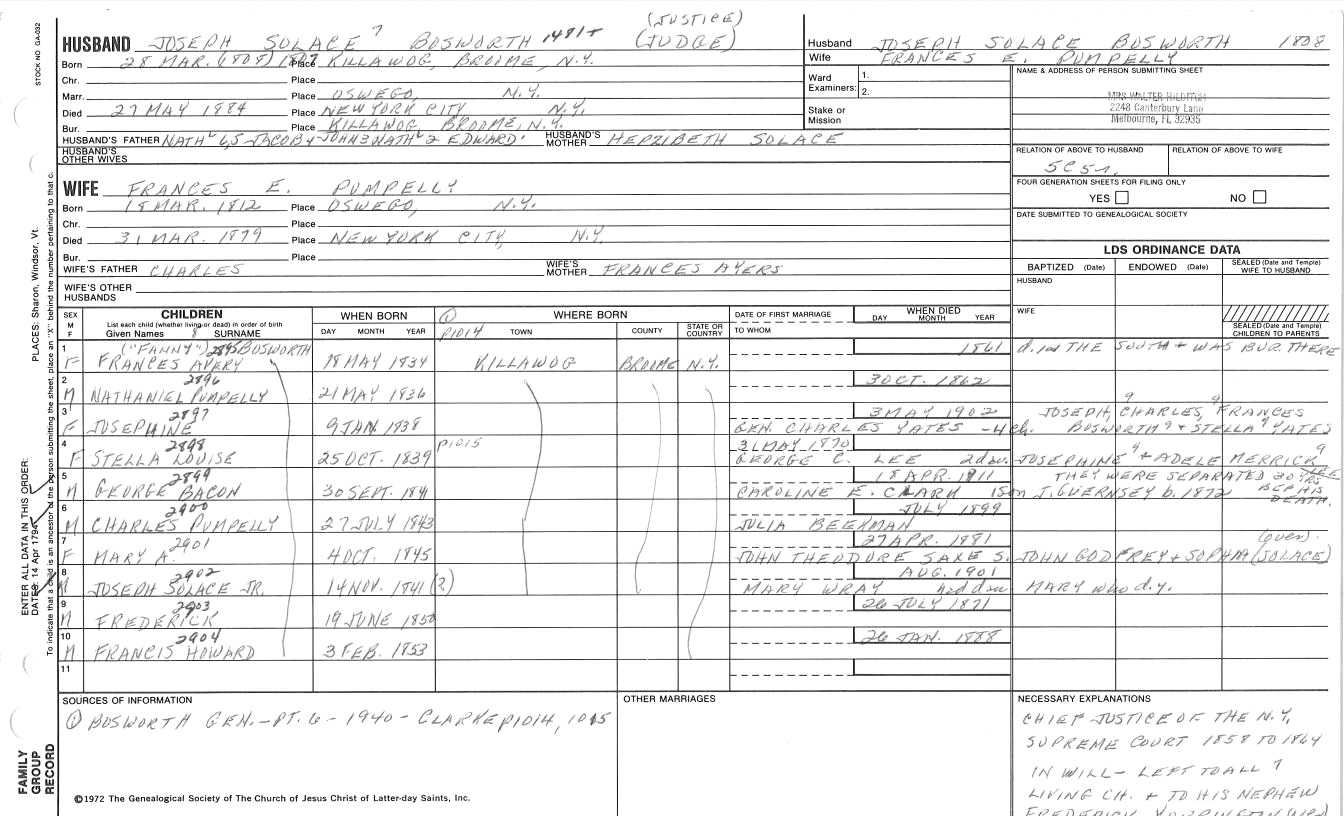 STOCK NO. GA-032
(JUSTICE)
HUSBAND JOSEPH SOLACE 7 BOSWORTH 1481+ (JUDGE)
Born 28 MAR. (1808) Place KILLAWOG, BROOME, N.Y.
Chr. Place
Marr. Place OSWEGO, N.Y.
Died 27 MAY 1884 Place NEW YORK CITY N.Y.
Bur. Place KILLAWOG, BROOME, N.Y.
HUSBAND'S FATHER NATH 6,5 JACOBY JOHN3 NATH 2 EDWARD' HUSBAND'S MOTHER HEPZIBETH SOLACE
HUSBAND'S OTHER WIVES
Husband JOSEPH SOLACE BOSWORTH 1808
Wife FRANCES E. PUMPELLY
Ward 1.
Examiners: 2.
Stake or Mission
NAME & ADDRESS OF PERSON SUBMITTING SHEET
MRS WALTER
2248 Canterbury Lane
Melbourne, FL 32935
RELATION OF ABOVE TO HUSBAND RELATION OF ABOVE TO WIFE
FOUR GENERATION SHEETS FOR FILING ONLY
YES NO
DATE SUBMITTED TO GENEALOGICAL SOCIETY
WIFE FRANCES E. PUMPELLY
Born 18 MAR. 1812 Place OSWEGO, N.Y.
Chr. Place
Died 31 MAR. 1879 Place NEW YORK CITY, N.Y.
Bur. Place
WIFE'S FATHER CHARLES WIFE'S MOTHER FRANCES AYERS
WIFE'S OTHER HUSBANDS
LDS ORDINANCE DATA
BAPTIZED (Date) ENDOWED (Date) SEALED (Date and Temple) WIFE TO HUSBAND
HUSBAND
WIFE
SEALED (Date and Temple) CHILDREN TO PARENTS
SEX M F
CHILDREN
List each child (whether living or dead) in order of birth
Given Names 8 SURNAME
WHEN BORN
DAY MONTH YEAR
① WHERE BORN
P1014 TOWN COUNTY STATE OR COUNTRY
DATE OF FIRST MARRIAGE
TO WHOM
WHEN DIED
DAY MONTH YEAR
1 ("FANNY") 2895 BOSWORTH 1861 d. in THE SOUTH + WAS BUR. THERE
F FRANCES AVERY 18 MAY 1834 KILLAWOG BROOME N.Y.
2 2896 3 OCT. 1862
M NATHANIEL PUMPELLY 21 MAY 1836
3 2897 3 MAY 1902 JOSEPH, CHARLES, 9 FRANCES 9
F JOSEPHINE 9 JAN. 1838 GEN. CHARLES YATES -4 ch. BOSWORTH 9 + STELLA 9 YATES
4 2898 P1015 31 MAY 1870
F STELLA LOUISE 25 OCT. 1839 GEORGE C. LEE 2 da. JOSEPHINE 9 + ADELE MERRICK 9 LEE
5 2899 18 APR. 1911 THEY WERE SEPARATED 20 YRS BEF HIS DEATH.
M GEORGE BACON 30 SEPT. 1841 CAROLINE E. CLARK 1 son J. GUERNSEY b. 1872
6 2900 JULY 1899
M CHARLES PUMPELLY 27 JULY 1843 JULIA BEEKMAN
7 2901 27 APR. 1881 (over)
F MARY A. 4 OCT. 1845 JOHN THEODORE SAXE S. JOHN GODFREY + SOPHIA (SOLACE)
8 2902 AUG. 1901
M JOSEPH SOLACE JR. 14 NOV. 1841 (?) MARY WRAY MARY who d.y.
9 2903 26 JULY 1871
M FREDERICK 19 JUNE 1850
10 2904 26 JAN. 1888
M FRANCIS HOWARD 3 FEB. 1853
11
SOURCES OF INFORMATION
① BOSWORTH GEN. - PT. 6 - 1940 - CLARKE P1014, 1015
OTHER MARRIAGES
NECESSARY EXPLANATIONS
CHIEF JUSTICE OF THE N.Y.
SUPREME COURT 1858 TO 1864
IN WILL - LEFT TO ALL 7
LIVING CH. + TO HIS NEPHEW
FREDERICK
©1972 The Genealogical Society of The Church of Jesus Christ of Latter-day Saints, Inc.
FAMILY GROUP RECORD
ENTER ALL DATA IN THIS ORDER:
DATES: 14 Apr 1794
PLACES: Sharon, Windsor, Vt.
To indicate that a child is an ancestor of the person submitting the sheet, place an "X" behind the number pertaining to that c.